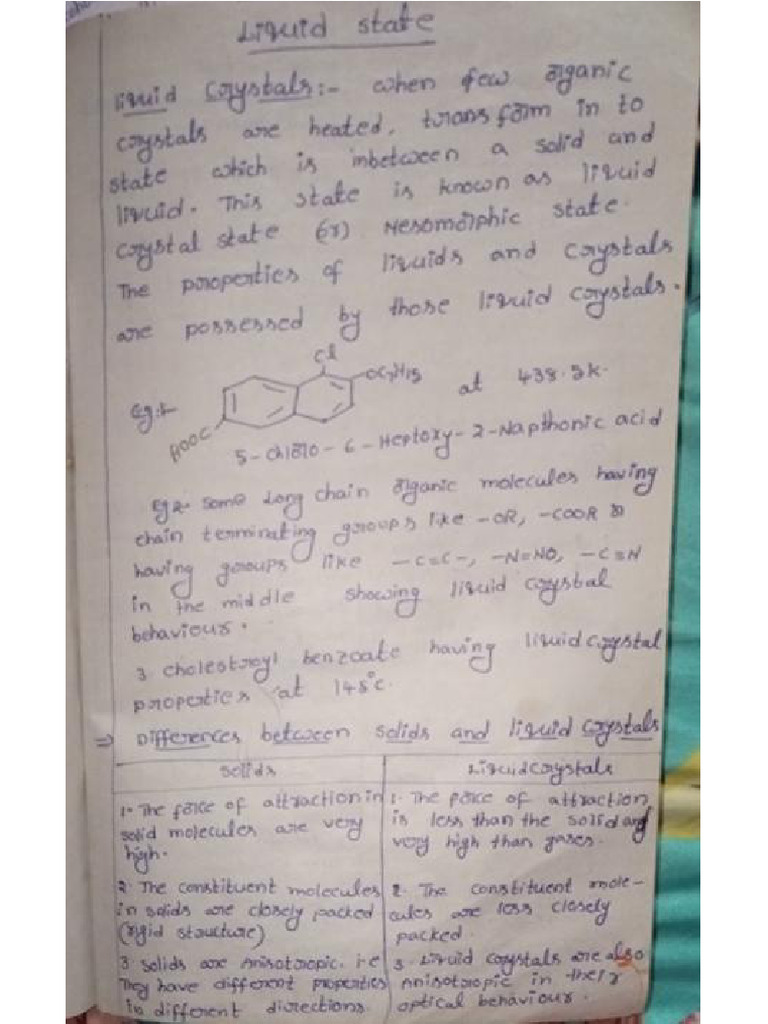 Liquid state
liquid crystals:- when few organic
crystals are heated, transform in to
state which is inbetween a solid and
liquid. This state is known as liquid
crystal state (or) Mesomorphic state.
The properties of liquids and crystals
are possessed by those liquid crystals.
Cl
OC7H15 at 438.5k.
Eg:1-
HOOC
5-chloro-6-Heptoxy-2-Napthonic acid
Eg2- Some Long chain organic molecules having
chain terminating groups like -OR, -COOR or
having groups like -C=C-, -N=NO, -C=N
in the middle showing liquid crystal
behaviour.
3 cholestroyl benzoate having liquid crystal
properties at 145°c.
⇒ Differences between solids and liquid crystals
Solids
Liquid crystals
1- The force of attraction in
solid molecules are very
high.
1. The force of attraction
is less than the solid and
very high than gases.
2 The constituent molecules
in solids are closely packed
(rigid structure)
2. The constituent mole-
cules are less closely
packed.
3 Solids are Anisotropic. i.e
They have different properties
in different directions.
3. Liquid crystals are also
Anisotropic in their
optical behaviour.